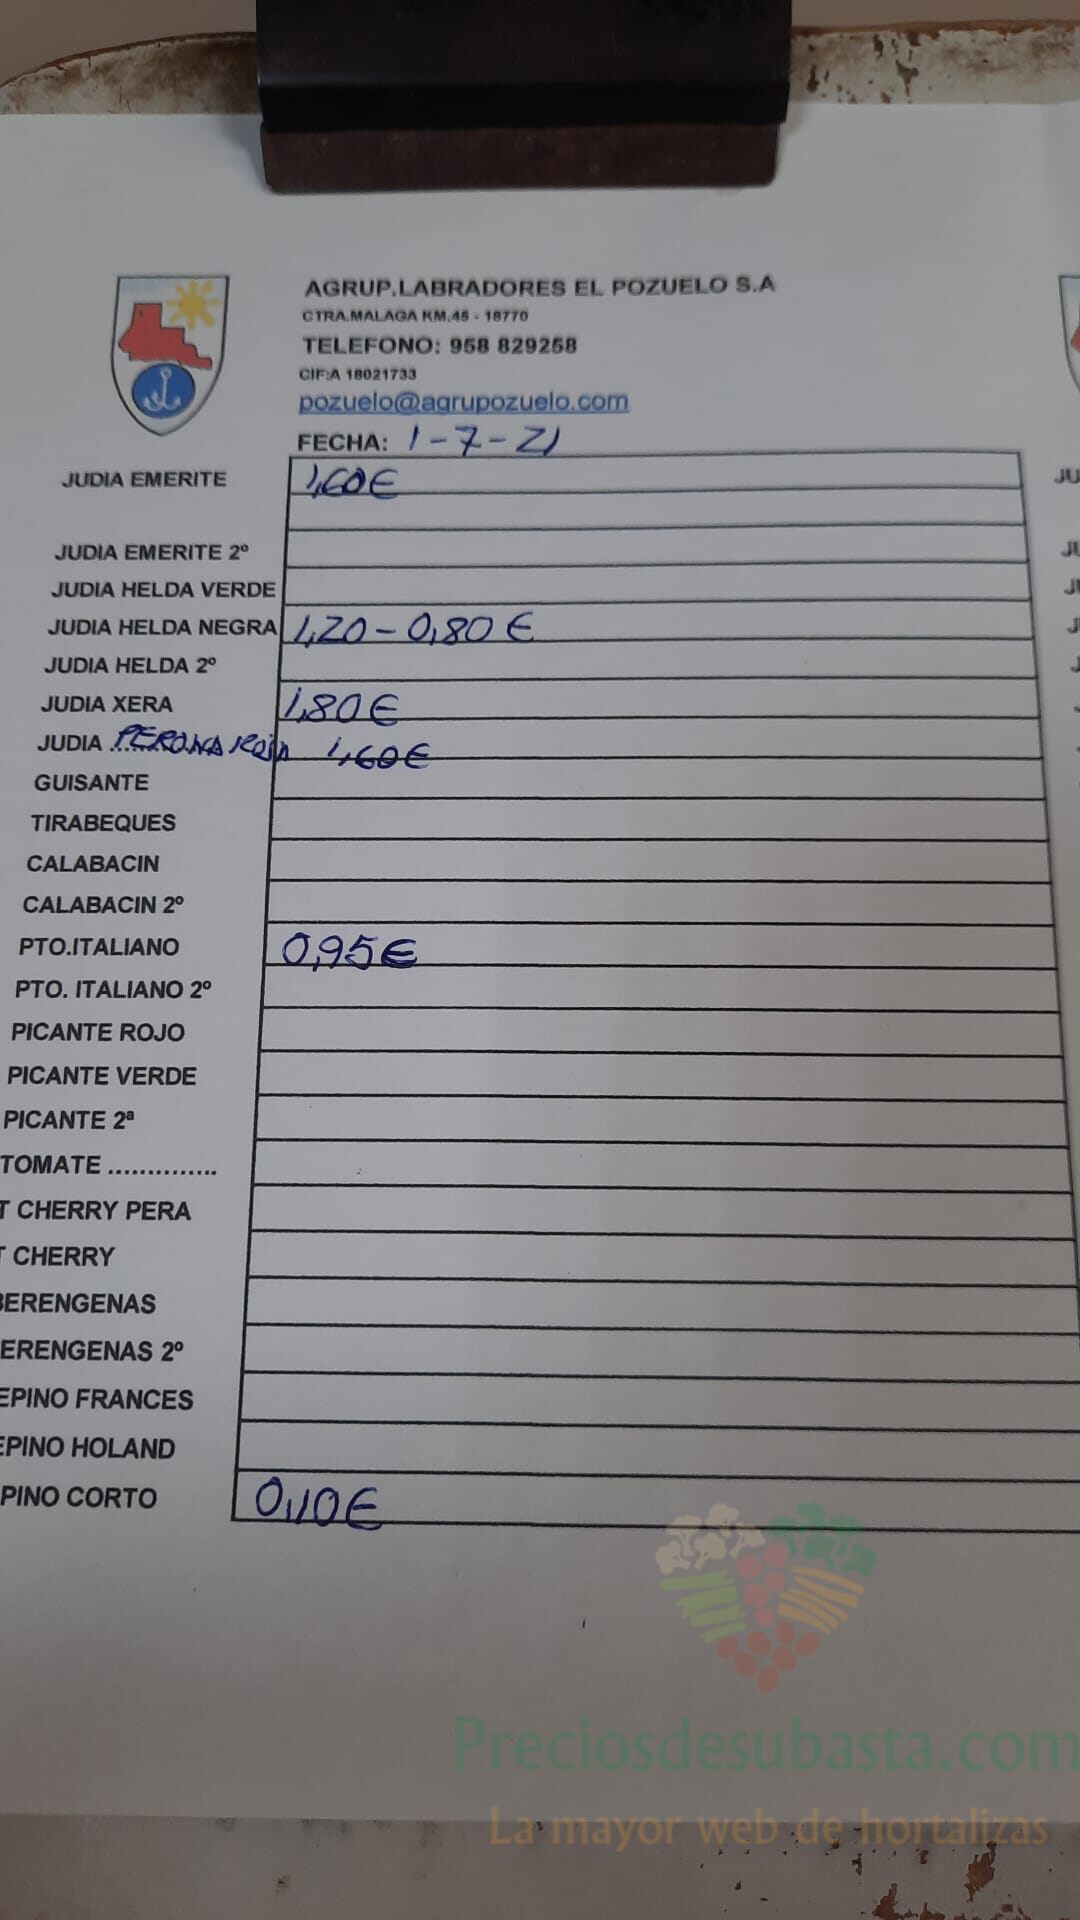 AGRUP.LABRADORES EL POZUELO S.A
CTRA.MALAGA KM.45 - 18770
TELEFONO: 958 829258
CIF:A 18021733
pozuelo@agrupozuelo.com
FECHA: 1-7-21
JUDIA EMERITE 1,60€
JUDIA EMERITE 2º
JUDIA HELDA VERDE
JUDIA HELDA NEGRA 1,20-0,80€
JUDIA HELDA 2º
JUDIA XERA 1,80€
JUDIA PERONA ROJA 1,60€
GUISANTE
TIRABEQUES
CALABACIN
CALABACIN 2º
PTO.ITALIANO 0,95€
PTO. ITALIANO 2º
PICANTE ROJO
PICANTE VERDE
PICANTE 2ª
TOMATE ..............
T CHERRY PERA
T CHERRY
BERENGENAS
ERENGENAS 2º
EPINO FRANCES
EPINO HOLAND
PINO CORTO 0,10€
JU
JU
JU
J
J
Preciosdesubasta.com
La mayor web de hortalizas